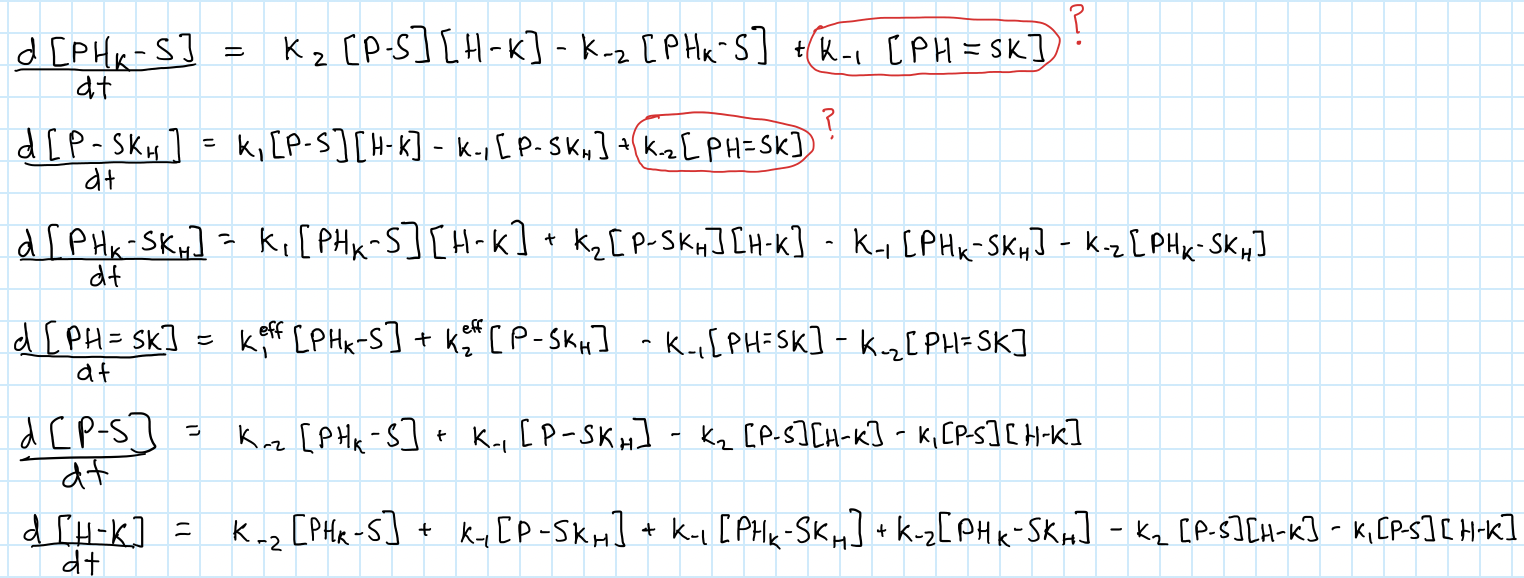 d[PH_K-S]/dt = K_2 [P-S][H-K] - K_-2 [PH_K-S] + K_-1 [PH=SK] ?
d[P-SK_H]/dt = K_1[P-S][H-K] - K_-1[P-SK_H] + K_-2[PH=SK] ?
d[PH_K-SK_H]/dt = K_1[PH_K-S][H-K] + K_2[P-SK_H][H-K] - K_-1[PH_K-SK_H] - K_-2[PH_K-SK_H]
d[PH=SK]/dt = K_1^eff[PH_K-S] + K_2^eff[P-SK_H] - K_-1[PH=SK] - K_-2[PH=SK]
d[P-S]/dt = K_-2 [PH_K-S] + K_-1 [P-SK_H] - K_2 [P-S][H-K] - K_1[P-S][H-K]
d[H-K]/dt = K_-2 [PH_K-S] + K_-1[P-SK_H] + K_-1 [PH_K-SK_H] + K_-2[PH_K-SK_H] - K_2 [P-S][H-K] - K_1[P-S][H-K]